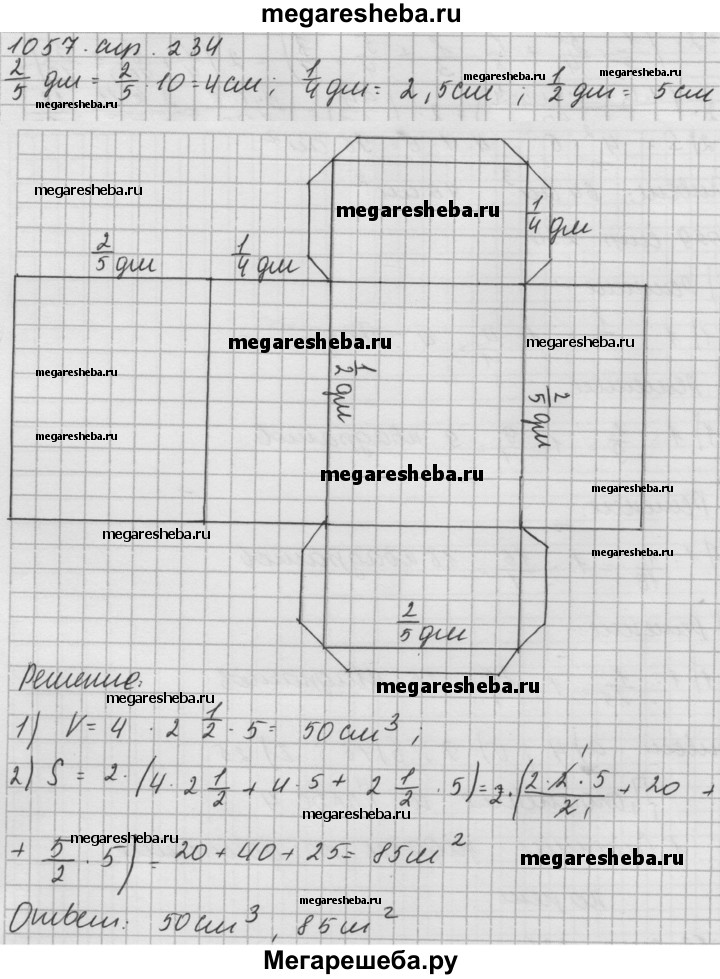 megaresheba.ru
1057. стр. 234
2/5 дм = 2/5 · 10 = 4 см; 1/4 дм = 2,5 см ; 1/2 дм = 5 см
megaresheba.ru megaresheba.ru megaresheba.ru
megaresheba.ru
megaresheba.ru
1/4 дм
2/5 дм 1/4 дм
megaresheba.ru megaresheba.ru
megaresheba.ru
1/2 дм 2/5 дм
megaresheba.ru
megaresheba.ru
megaresheba.ru
megaresheba.ru
megaresheba.ru
2/5 дм
Решение:
megaresheba.ru
megaresheba.ru
1) V = 4 · 2 1/2 · 5 = 50 см³;
2) S = 2 · (4 · 2 1/2 + 4 · 5 + 2 1/2 · 5) = 2 · (2 · 2 · 5 / 2 1 1 + 20 +
megaresheba.ru
+ 5/2 · 5) = 20 + 40 + 25 = 85 м²
megaresheba.ru
megaresheba.ru
megaresheba.ru
Ответ: 50 см³, 85 м²
Мегарешеба.ру